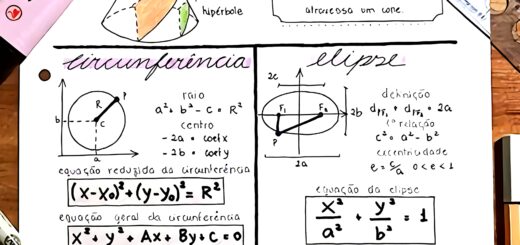 hipérbole
atravessa um cone.
circunferência
R
P
C
b
a
raio
a² + b² - C = R²
centro
-2a = coef x
-2b = coef y
equação reduzida da circunferência
(X-X₀)² + (y-y₀)² = R²
equação geral da circunferência
X² + y² + Ax + By + C = 0
elipse
2c
F₁
F₂
2b
P
2a
definição
dPF₁ + dPF₂ = 2a
relação
c² = a² - b²
excentricidade
e = c/a 0 < e < 1
equação da elipse
x²/a² + y²/b² = 1